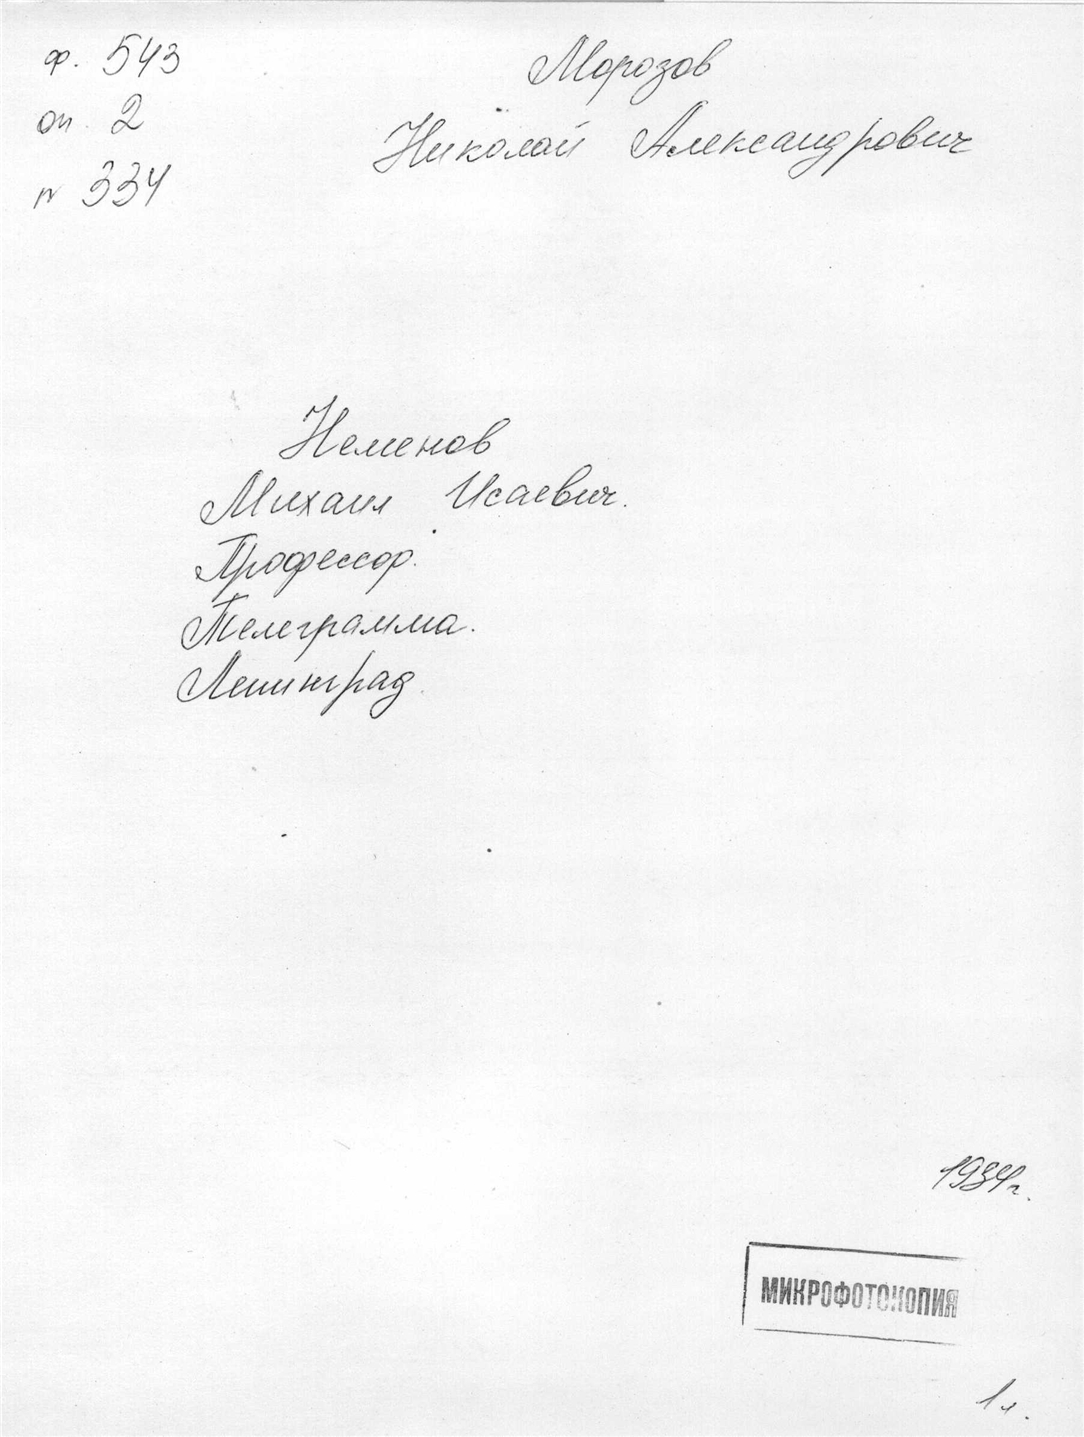 ф. 543
оп. 2
№ 334
Морозов
Николай Александрович
Неменов
Михаил Исаевич.
Профессор.
Телеграмма.
Ленинград.
1934г.
МИКРОФОТОКОПИЯ
1 л.